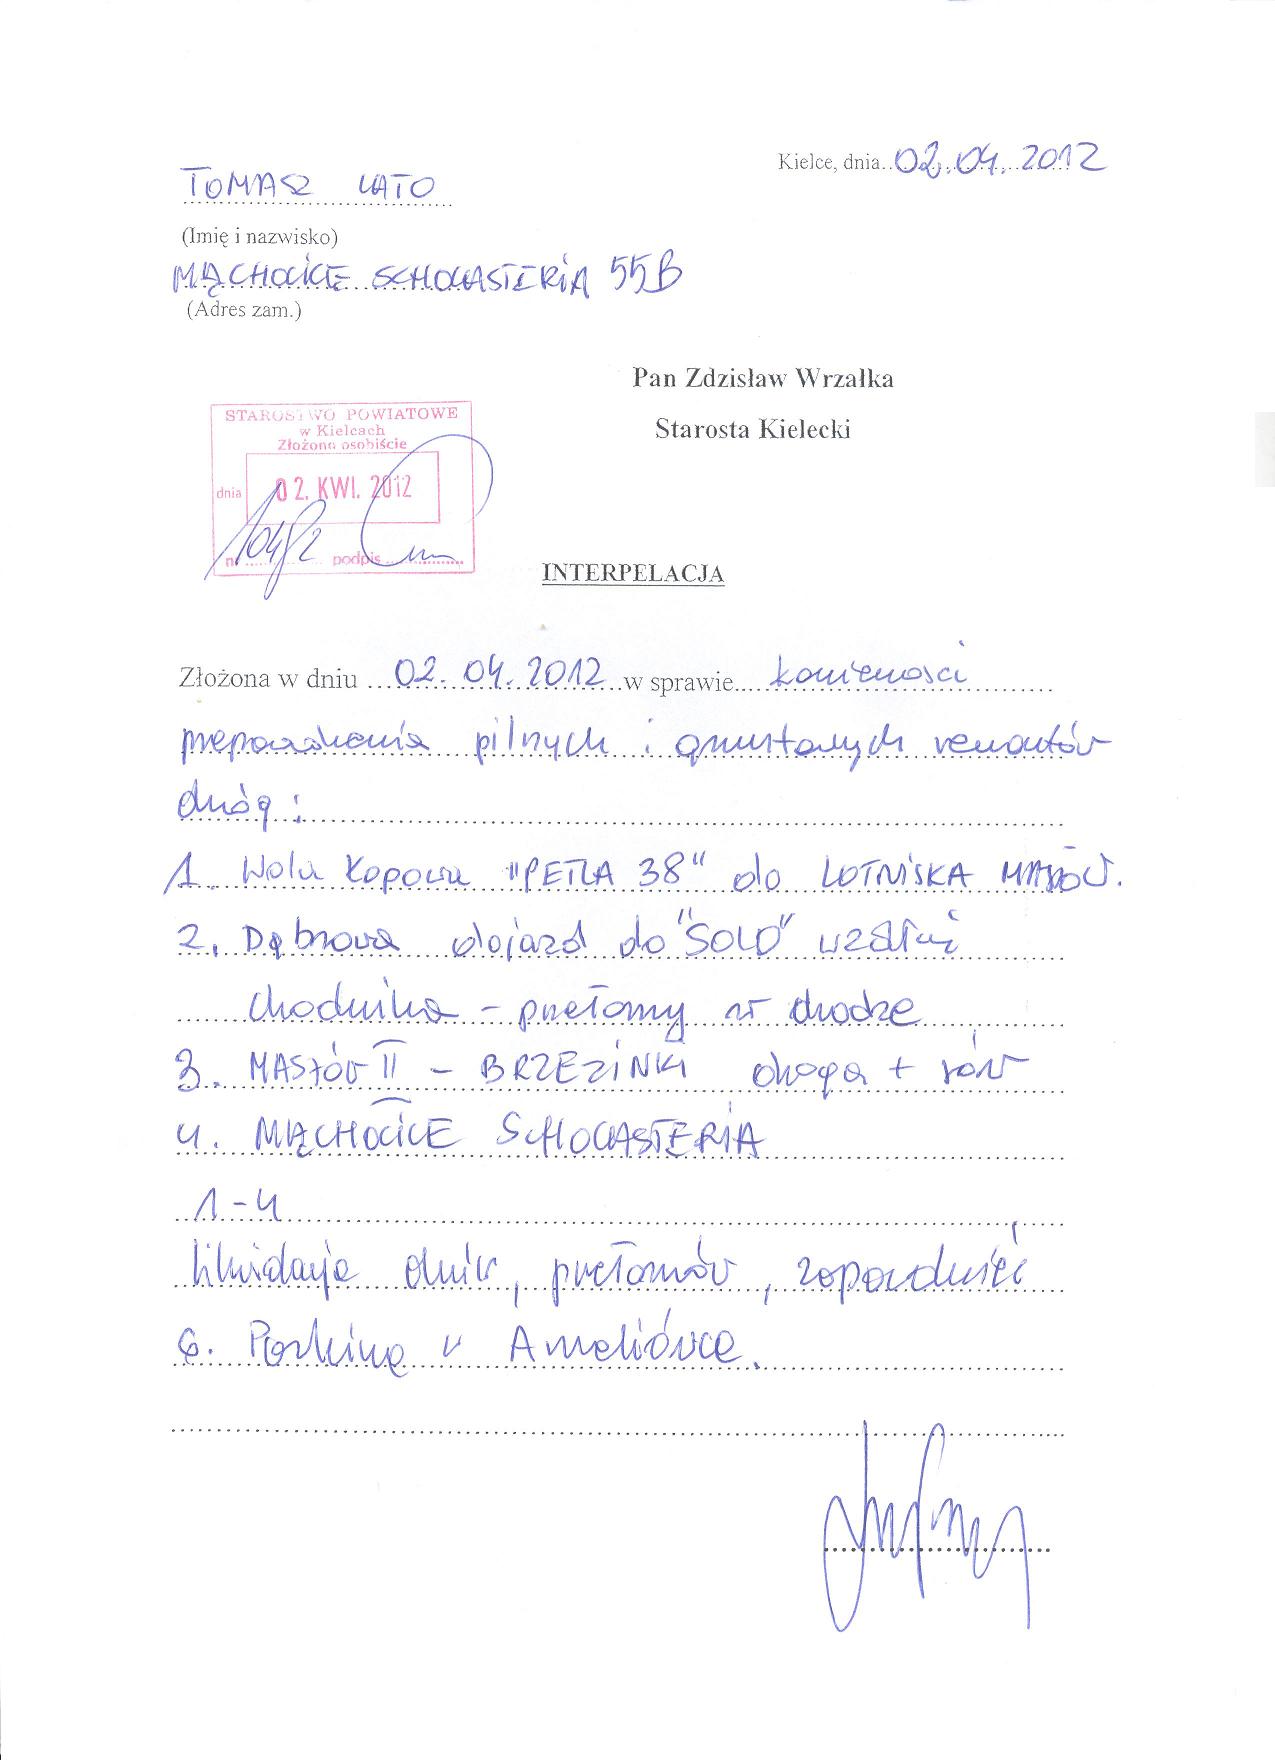 Kielce, dnia 02.04.2012
TOMASZ LATO
(Imię i nazwisko)
MĄCHOCICE SCHOLASTERIA 55B
(Adres zam.)
Pan Zdzisław Wrzałka
Starosta Kielecki
STAROSTWO POWIATOWE
w Kielcach
Złożono osobiście
dnia 02. KWI. 2012
podpis
INTERPELACJA
Złożona w dniu 02.04.2012 w sprawie konieczności
przeprowadzenia pilnych i gruntownych remontów
dróg :
1. Wola Kopcowa "PĘTLA 38" do LOTNISKA MASŁÓW.
2. Dąbrowa dojazd do "SOLO" wzdłuż
chodnika - przełomy w drodze
3. MASŁÓW II - BRZEZINKI droga + rów
4. MĄCHOCICE SCHOLASTERIA
1-4
likwidacja dziur, przełomów, zapadnięć
6. Parking w Ameliówce.